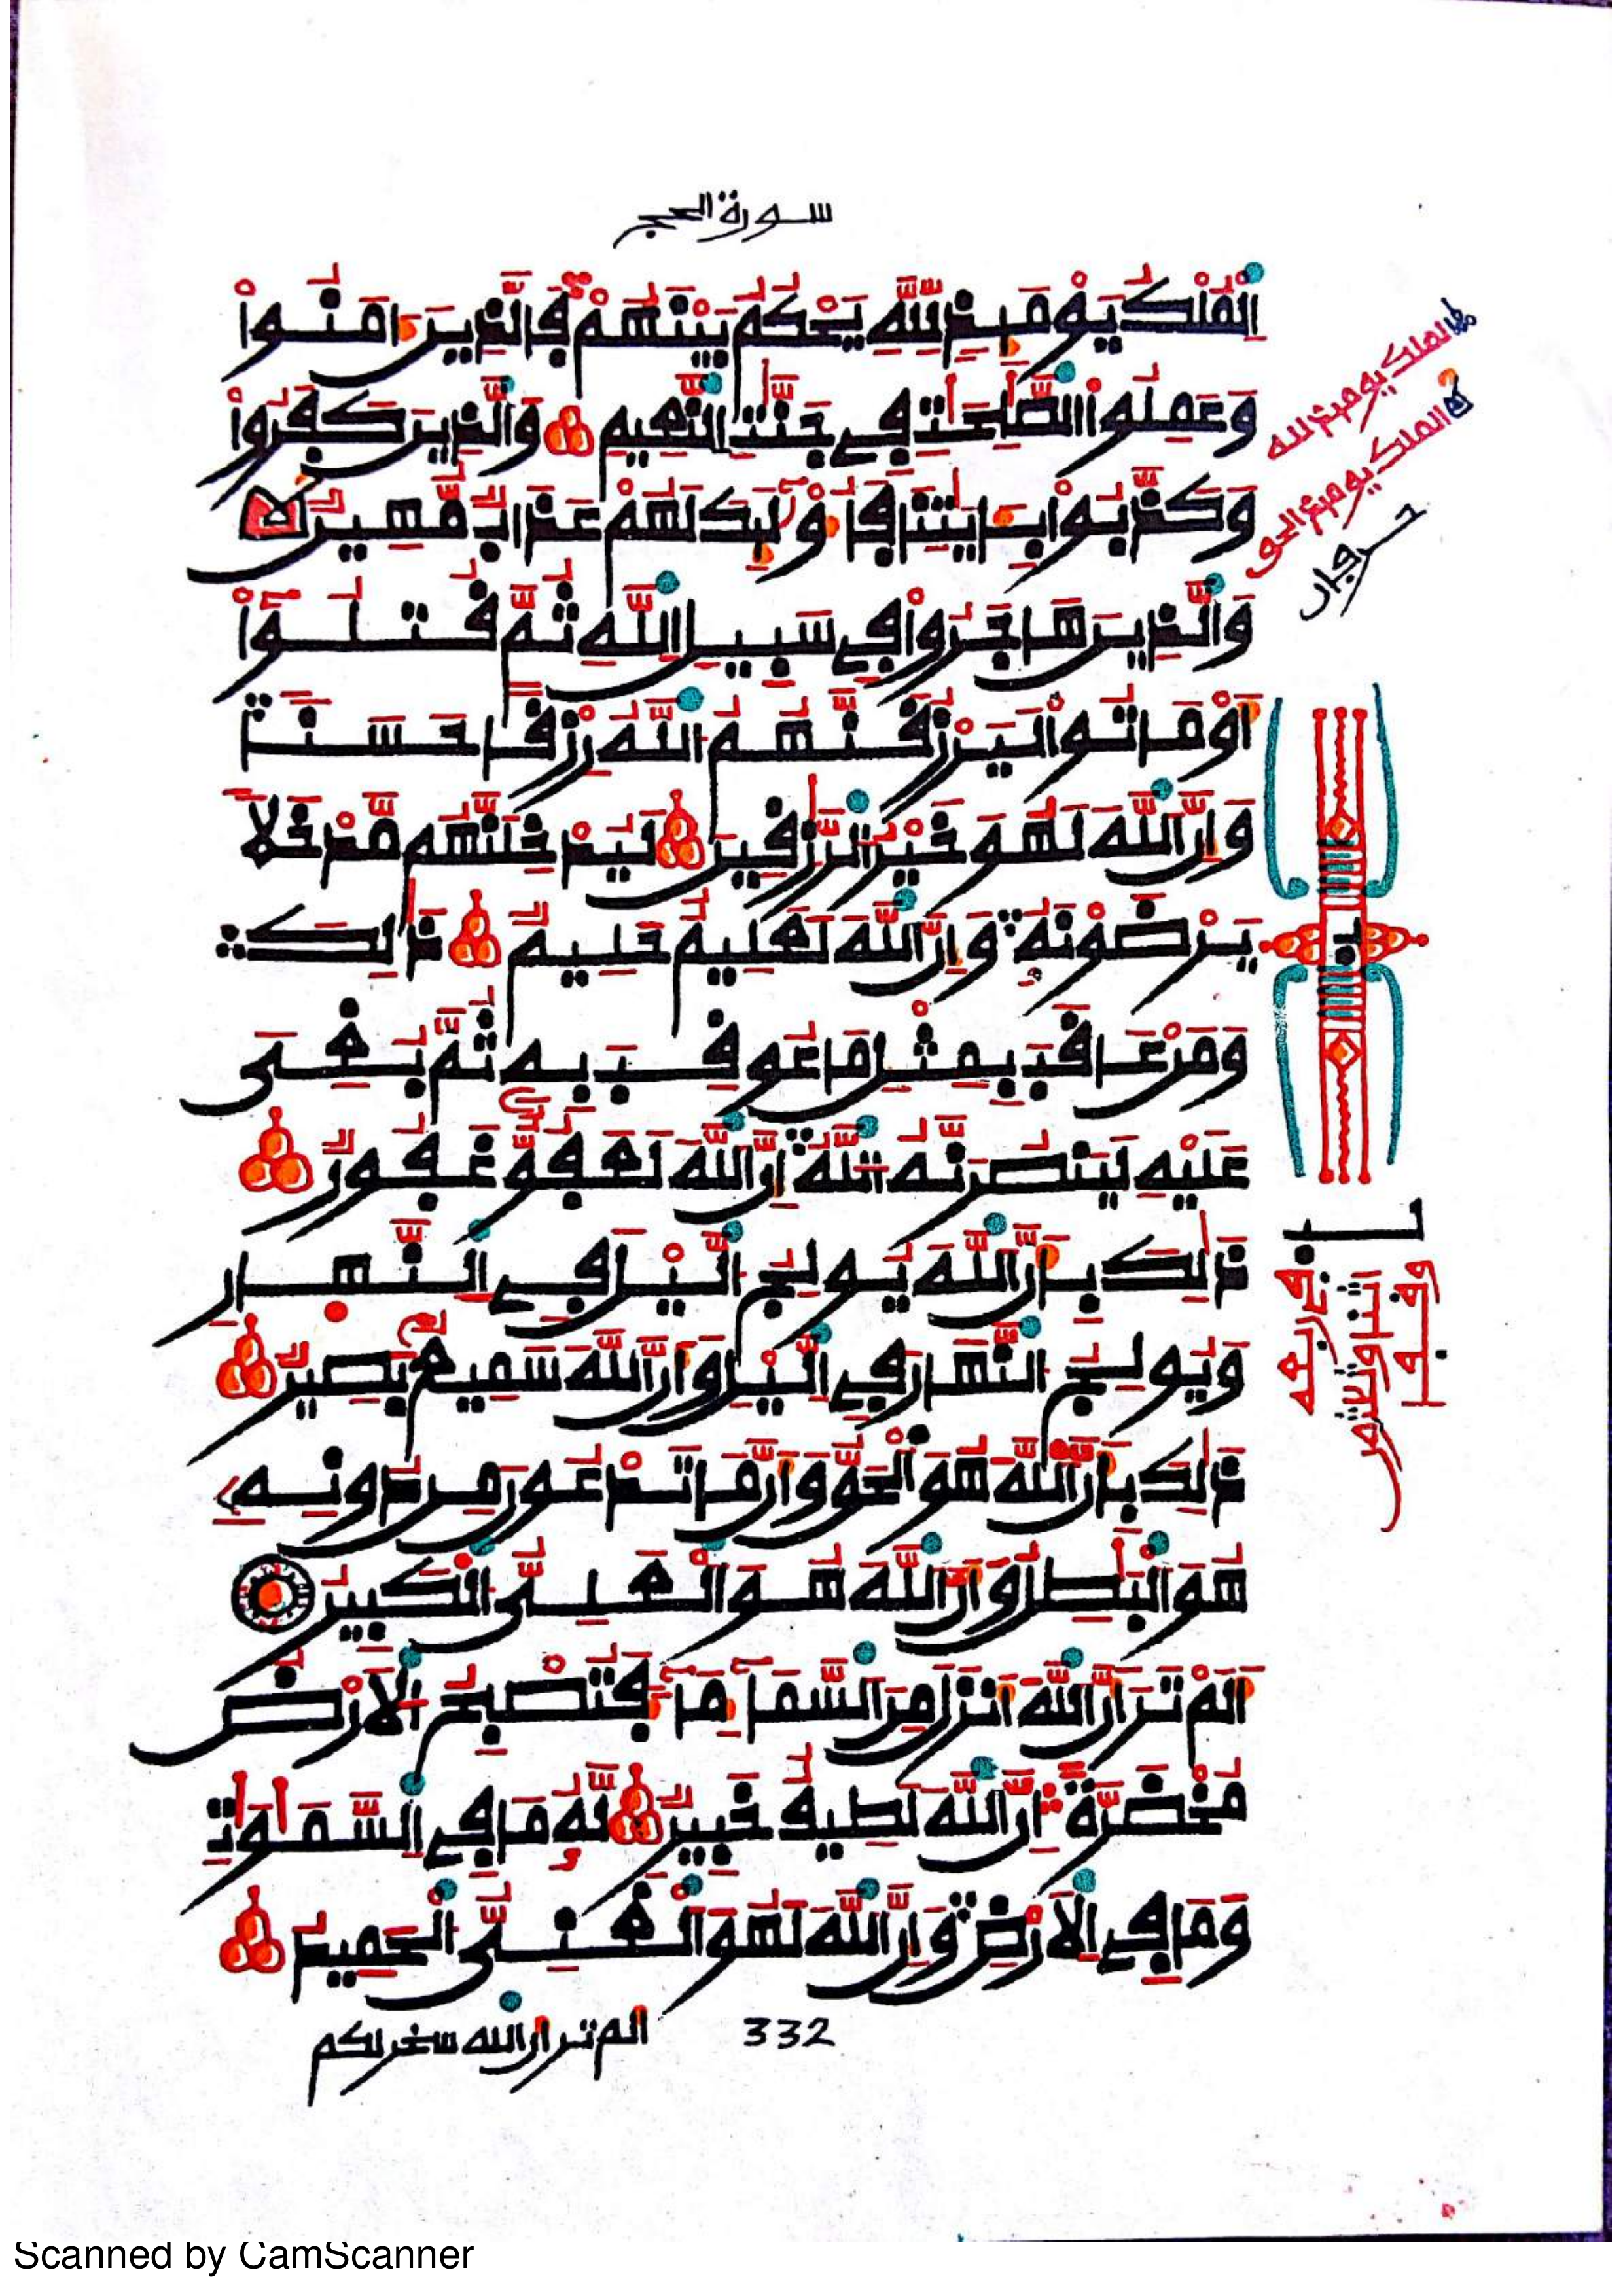 سورة الحج
اَ۬لْمُلْكُ يَوْمَئِذٍ لِّلهِ يَحْكُمُ بَيْنَهُمْ فَالذِينَ ءَامَنُواْ
وَعَمِلُواْ اُ۬لصَّٰلِحَٰتِ فِے جَنَّٰتِ اِ۬لنَّعِيمِ وَالذِينَ كَفَرُواْ
وَكَذَّبُواْ بِـَٔايَٰتِنَا فَأُوْلَٰٓئِكَ لَهُمْ عَذَابٞ مُّهِينٞ
وَالذِينَ هَاجَرُواْ فِے سَبِيلِ اِ۬للَّهِ ثُمَّ قُتِلُوٓاْ
أَوْ مَاتُواْ لَيَرْزُقَنَّهُمُ اُ۬للَّهُ رِزْقاً حَسَناٗ
وَإِنَّ اَ۬للَّهَ لَهُوَ خَيْرُ اُ۬لرَّٰزِقِينَ لَيُدْخِلَنَّهُم مَّدْخَلاٗ
يَرْضَوْنَهُۥ وَإِنَّ اَ۬للَّهَ لَعَلِيمٌ حَلِيمٞ ذَٰلِكَ
وَمَنْ عَاقَبَ بِمِثْلِ مَا عُوقِبَ بِهِۦ ثُمَّ بُغِيَ
عَلَيْهِ لَيَنصُرَنَّهُ اُ۬للَّهُ إِنَّ اَ۬للَّهَ لَعَفُوٌّ غَفُورٞ
ذَٰلِكَ بِأَنَّ اَ۬للَّهَ يُولِجُ اُ۬ليْلَ فِے اِ۬لنَّهَارِ
وَيُولِجُ اُ۬لنَّهَارَ فِے اِ۬ليْلِ وَأَنَّ اَ۬للَّهَ سَمِيعُۢ بَصِيرٞ
ذَٰلِكَ بِأَنَّ اَ۬للَّهَ هُوَ اَ۬لْحَقُّ وَأَنَّ مَا تَدْعُونَ مِن دُونِهِۦ
هُوَ اَ۬لْبَٰطِلُ وَأَنَّ اَ۬للَّهَ هُوَ اَ۬لْعَلِيُّ اُ۬لْكَبِيرُ
أَلَمْ تَرَ أَنَّ اَ۬للَّهَ أَنزَلَ مِنَ اَ۬لسَّمَآءِ مَآءٗ فَتُصْبِحُ اُ۬لَارْضُ
مُخْضَرَّةً إِنَّ اَ۬للَّهَ لَطِيفٌ خَبِيرٞ لَّهُۥ مَا فِے اِ۬لسَّمَٰوَٰتِ
وَمَا فِے اِ۬لَارْضِ وَإِنَّ اَ۬للَّهَ لَهُوَ اَ۬لْغَنِيُّ اُ۬لْحَمِيدُ
332
الم تر ان الله سخر لكم
الملك يومئذ لله
الملك يومئذ الحق
Scanned by CamScanner